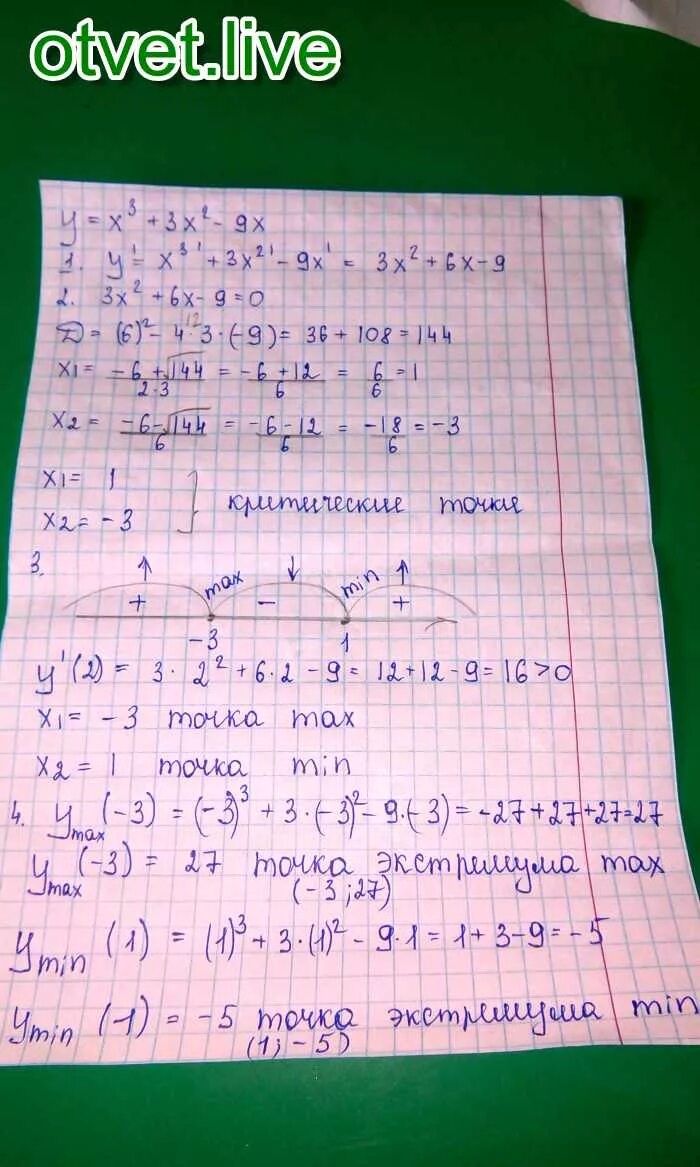 otvet.live
y = x³ + 3x² - 9x
1. y' = x³' + 3x²' - 9x' = 3x² + 6x - 9
2. 3x² + 6x - 9 = 0
D = (6)² - 4·3·(-9) = 36 + 108 = 144
x1 = (-6 + √144)/(2·3) = (-6 + 12)/6 = 6/6 = 1
x2 = (-6 - √144)/6 = (-6 - 12)/6 = -18/6 = -3
x1 = 1
x2 = -3
} критические точки
3.
↑ max ↓ min ↑
+ - +
-3 1
y'(2) = 3·2² + 6·2 - 9 = 12 + 12 - 9 = 16 > 0
x1 = -3 точка max
x2 = 1 точка min
4. y max (-3) = (-3)³ + 3·(-3)² - 9·(-3) = -27 + 27 + 27 = 27
y max (-3) = 27 точка экстремума max
(-3; 27)
y min (1) = (1)³ + 3·(1)² - 9·1 = 1 + 3 - 9 = -5
y min (1) = -5 точка экстремума min
(1; -5)